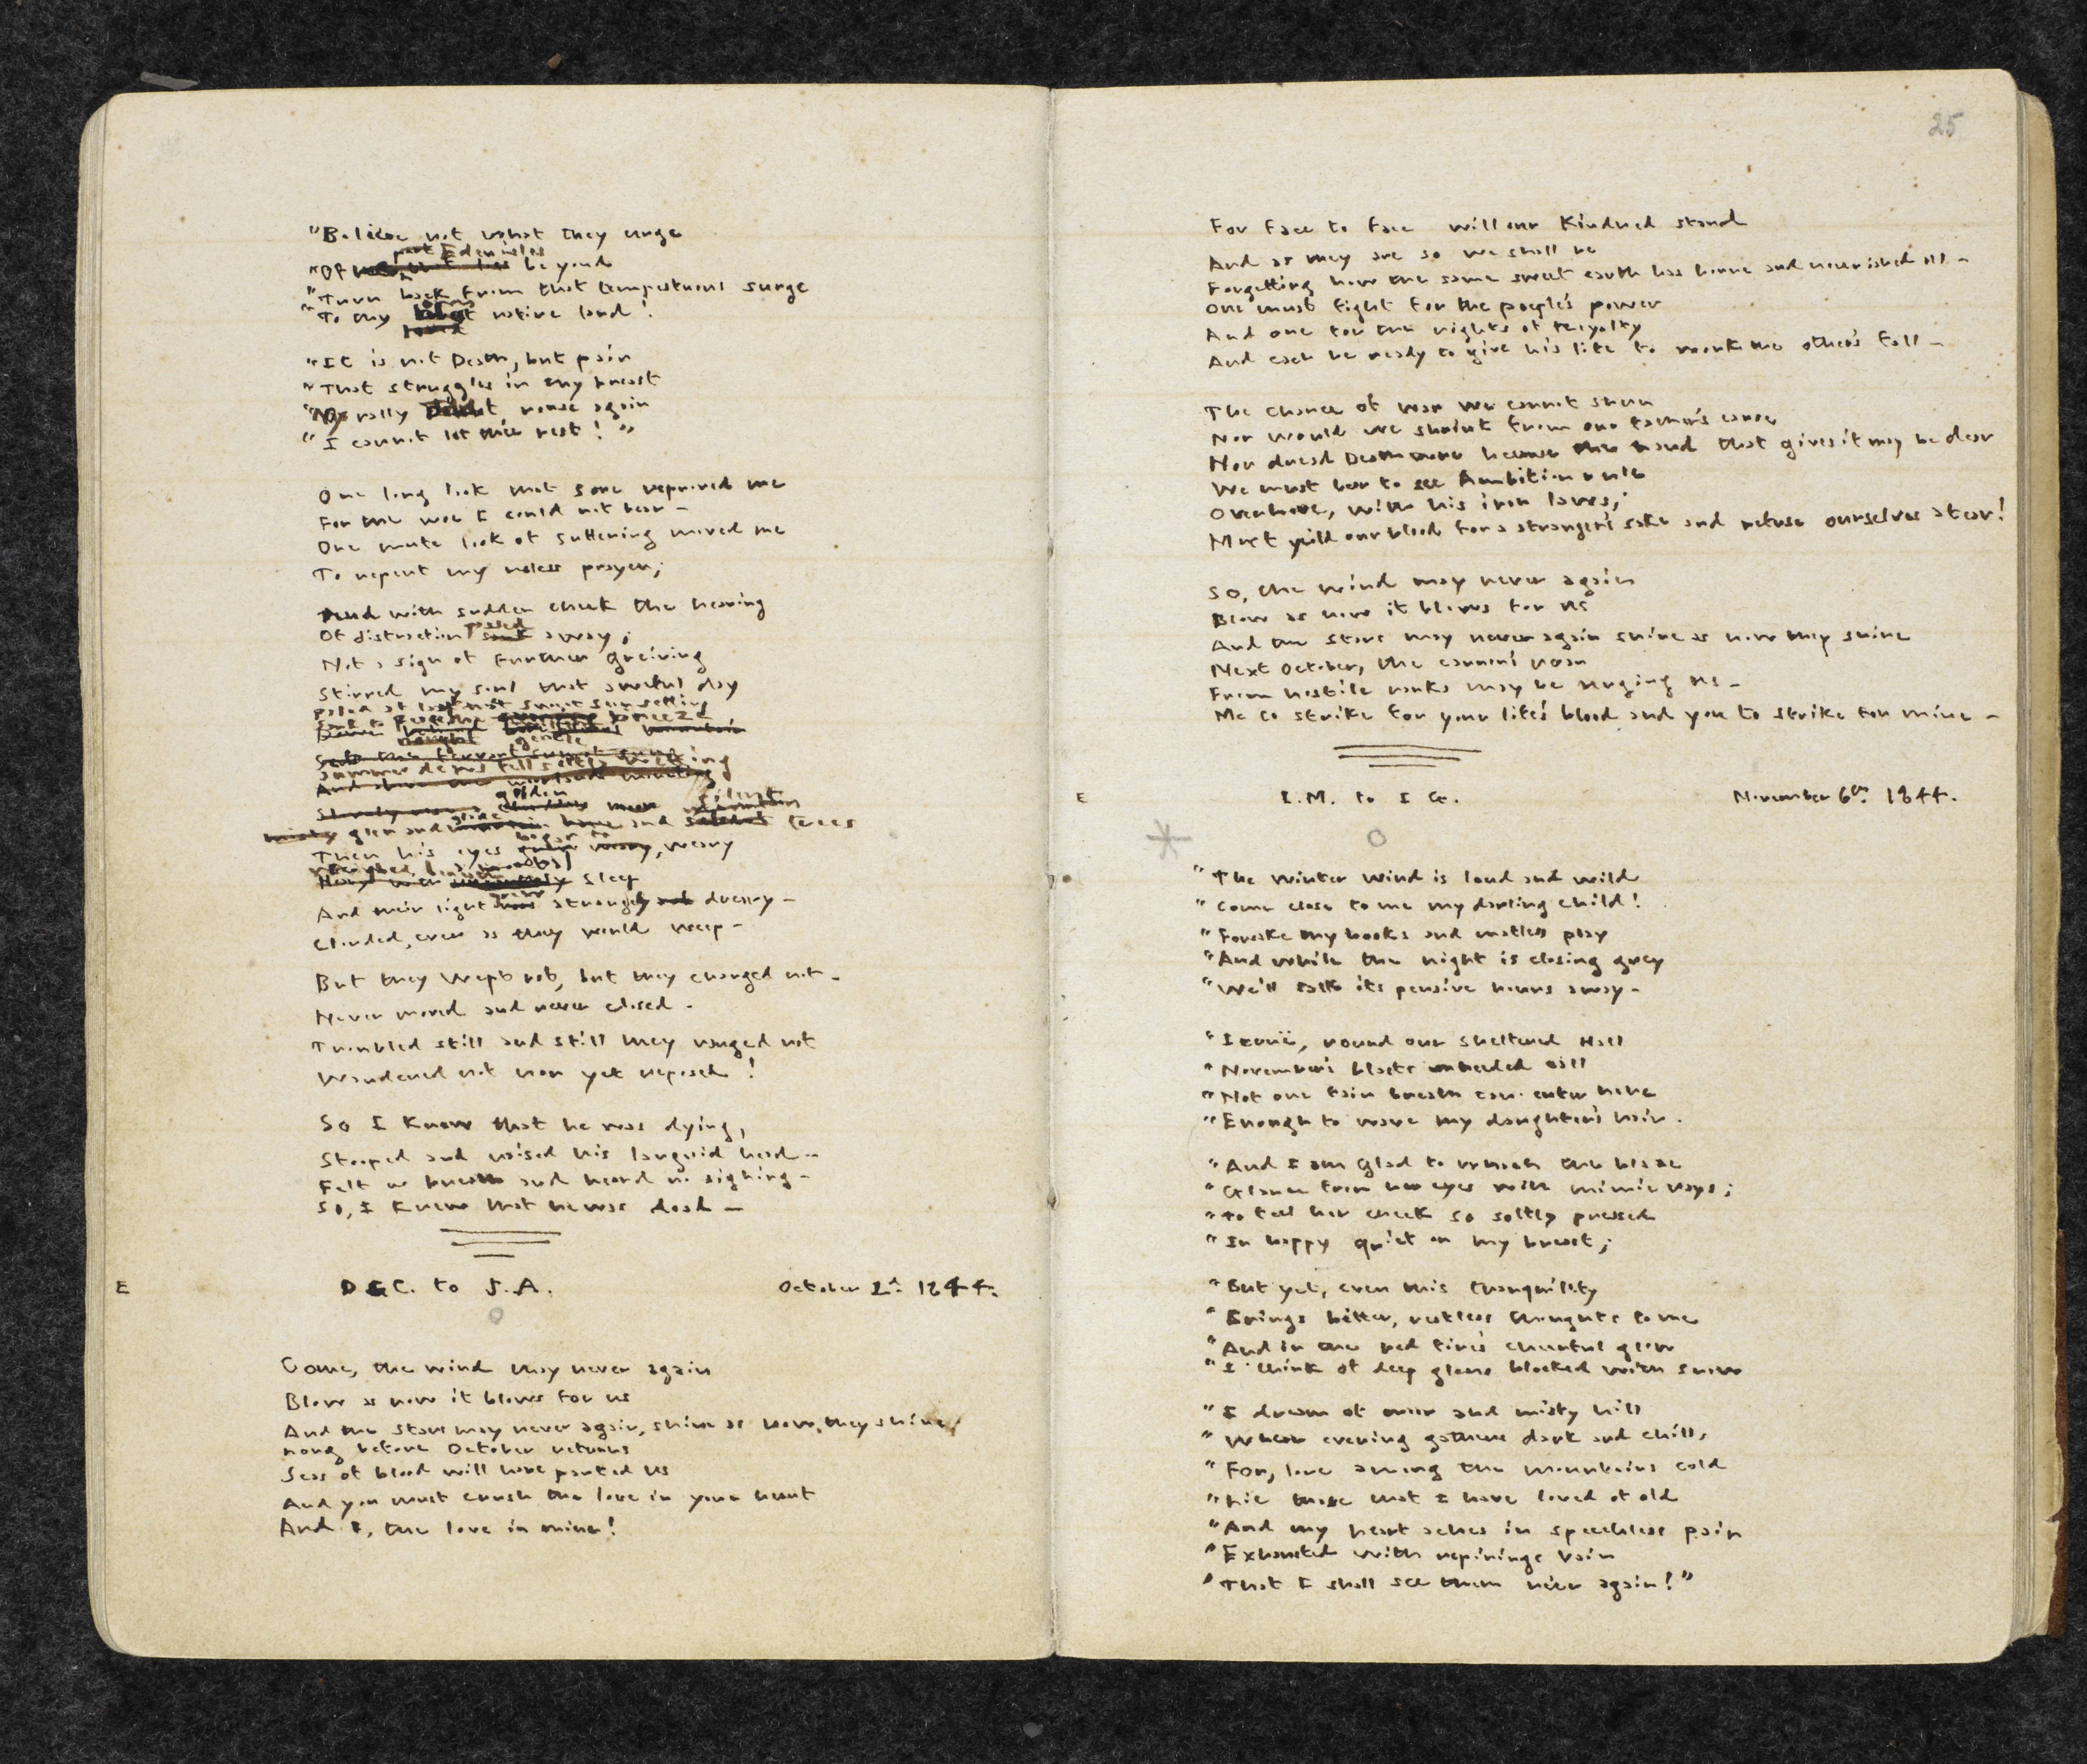 "Believe not what they urge
past Eden isles
"Of beyond
"Turn back from that tempestuous surge
"To my native land!
"It is not Death, but pain
"That struggles in my breast
"Nay rally rouse again
"I cannot let thee rest!"
One long look that sore reproved me
For the woe I could not bear -
One mute look of suffering moved me
To repent my useless prayer;
And with sudden check the heaving
passed
Of distraction sunk away;
Not a sign of further greiving
Stirred my soul that awful day
Paled at last the sweet sun setting
Sunk to peace the breeze
gentle
Summer dews fell softly wetting
golden silent
glen and glade and trees
began to
Then his eyes weary, weary
sleep
And their light grew strangely dreary -
Clouded, even as they would weep -
But they wept not, but they changed not -
Never moved and never closed -
Troubled still and still they ranged not
Wandered not nor yet reposed!
So I knew that he was dying,
Stooped and raised his languid head -
Felt no breath and heard no sighing -
So, I knew that he was dead -
E D.G.C. to J.A. October 2d. 1844.
Come, the wind may never again
Blow as now it blows for us
And the stars may never again, shine as now, they shine,
Long before October returns
Seas of blood will have parted us
And you must crush the love in your heart
And I, the love in mine!
25
For face to face will our Kindred stand
And as they are so we shall be
Forgetting how the same sweet earth has borne and nourished all -
One must fight for the people's power
And one for the rights of royalty
And each be ready to give his life to work the other's fall -
The chance of war we cannot shun
Nor would we shrink from our father's cause
Nor dread Death more because the hand that gives it may be dear
We must bear to see Ambition rule
Over love, with his iron laws;
Must yield our blood for a stranger's sake and refuse ourselves a tear!
So, the wind may never again
Blow as now it blows for us
And the stars may never again shine as now they shine
Next October, the cannon's roar
From hostile ranks may be urging us -
Me to strike for your life's blood and you to strike for mine -
E I.M. to I G. November 6th. 1844.
"The winter wind is loud and wild
"Come close to me my darling child!
"Forsake thy books and mateless play
"And while the night is closing grey
"We'll talk its pensive hours away -
"Iernë, round our sheltered Hall
"November's blasts unheeded call
"Not one fain breath can enter here
"Enough to wave my daughter's hair.
"And I am glad to watch the blaze
"Glance from her eyes with mimic rays;
"To feel her cheek so softly pressed
"In happy quiet on my breast;
"But yet, even this tranquillity
"Brings bitter, restless thoughts to me
"And in the red fire's cheerful glow
"I think of deep glens blocked with snow
"I dream of moor and misty hill
"Where evening gathers dark and chill,
"For, lone among the mountains cold
"Lie those that I have loved of old
"And my heart aches in speechless pain
"Exhausted with repinings vain
"That I shall see them ne'er again!"